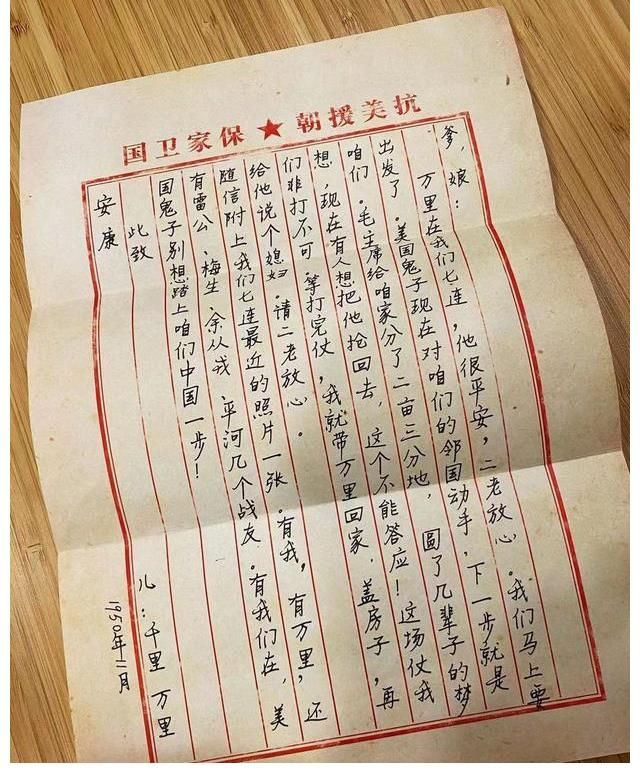 抗美援朝★保家卫国
爹，娘：
万里在我们七连，他很平安，二老放心。我们马上要
出发了。美国鬼子现在对咱们的邻国动手，下一步就是
咱们。毛主席给咱家分了二亩三分地，圆了几辈子的梦
想，现在有人想把他抢回去，这个不能答应！这场仗我
们非打不可。等打完仗，我就带万里回家，盖房子，再
给他说个媳妇。请二老放心。
随信附上我们七连最近的照片一张。有我，有万里，还
有雷公、梅生、余从戎、平河几个战友。有我们在，美
国鬼子别想踏上咱们中国一步！
此致
安康
儿：千里 万里
1950年11月